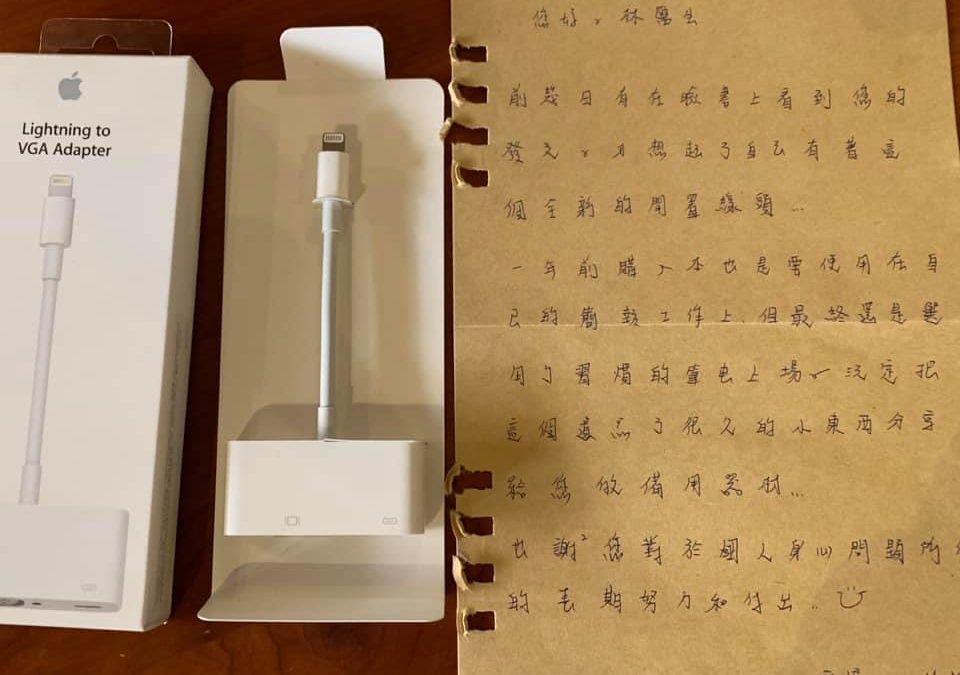 Lightning to
VGA Adapter
您好，林醫生
前幾日有在臉書上看到您的
發文，才想起了自己有著這
個全新的閒置線頭...
一年前購入本也是要使用在自
己的簡報工作上，但最終還是選
用了習慣的筆電上場，決定把
這個遺忘了很久的小東西分享
給您做備用器材...
也謝²您對於國人身心問題所
的長期努力和付出..